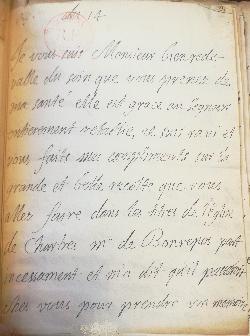 du 14
Je vous suis Monsieur bien rede-
vable du soin que vous prenez de
ma santé elle est grace au seigneur
entierement retablie, je suis ravi et
vous faits mes compliments sur la
grande et belle recolte que vous
allez faire dans les titres de l'église
de Chartres mr de Barrepos part
incessament et m'a dit qu'il
chez vous pour prendre vos memoires